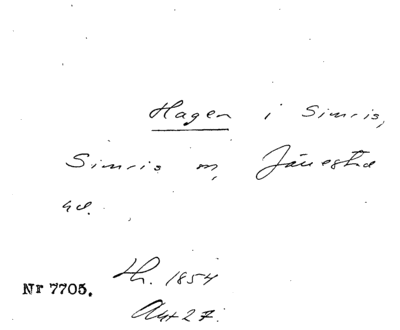 Hagen i Simris,
Simris sn, Järrestad
hd.
Nr 7705. Th. 1854
Akt 27.